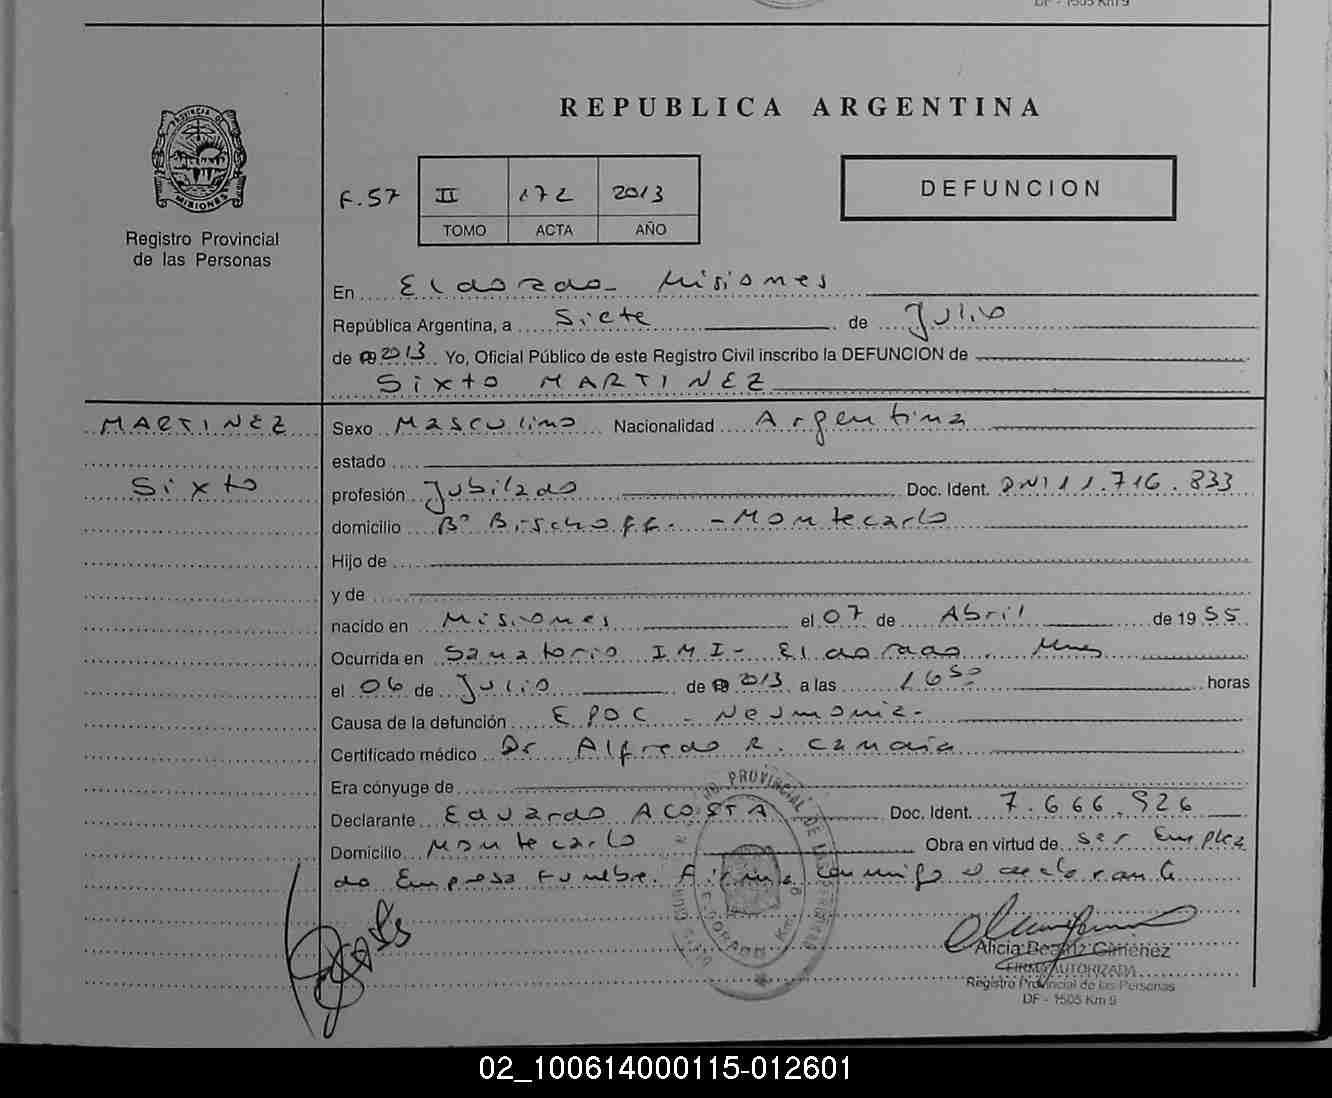 DF - 1505 Km 9
REPUBLICA ARGENTINA
PROVINCIA DE
MISIONES
Registro Provincial
de las Personas
F.57 II 172 2013
TOMO ACTA AÑO
DEFUNCION
En Eldorado - Misiones
República Argentina, a Siete de Julio
de 2013 Yo, Oficial Público de este Registro Civil inscribo la DEFUNCION de
Sixto MARTINEZ
MARTINEZ
Sixto
Sexo Masculino Nacionalidad Argentina
estado
profesión Jubilado Doc. Ident. DNI 11.716.833
domicilio Bº Bischoff. - Montecarlo
Hijo de
y de
nacido en Misiones el 07 de Abril de 1955
Ocurrida en Sanatorio IMI - Eldorado, Mnes
el 06 de Julio de 2013 a las 16 50 horas
Causa de la defunción EPOC - Neumonia -
Certificado médico Dr Alfredo R. Canaia
Era cónyuge de
Declarante Eduardo ACOSTA Doc. Ident. 7.666.926
Domicilio Montecarlo Obra en virtud de ser Emplea
do Empresa Funebre. Firma conmigo el declarante
PROVINCIAL DE LAS PERSONAS
ELDORADO Km. 9
Alicia Beatriz Gimenez
FIRMA AUTORIZADA
Registro Provincial de las Personas
DF - 1505 Km 9
02_100614000115-012601